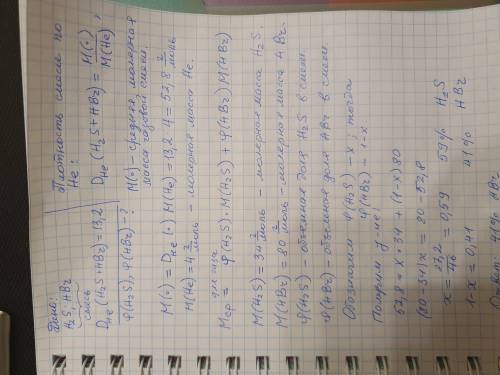 Дано:
H₂S; HBr
смесь
D_He (H₂S+HBr) = 13,2
φ(H₂S), φ(HBr) - ?
Плотность смеси по
He:
D_He (H₂S+HBr) = M(·)/M(He),
M(·) - средняя молярная
масса газовой смеси.
M(·) = D_He (·) M(He) = 13,2 · 4 = 52,8 г/моль
M(He) = 4 г/моль - молярная масса He.
для газа
Mср = φ(H₂S)·M(H₂S) + φ(HBr) M(HBr)
M(H₂S) = 34 г/моль - молярная масса H₂S.
M(HBr) = 80 г/моль - молярная масса HBr.
φ(H₂S) - объемная доля H₂S в смеси
φ(HBr) - объемная доля HBr в смеси
Обозначим φ(H₂S) - x; тогда
φ(HBr) - 1-x.
Получим у-ие:
52,8 = x·34 + (1-x)80
(80-34)x = 80 - 52,8
x = 27,2/46 = 0,59 59% H₂S
1-x = 0,41 41% HBr
41% HBr